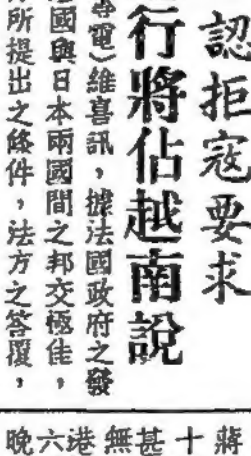 認拒寇要求
行將佔越南說
電）維喜訊，據法國政府之發
國與日本兩國間之邦交極佳，
所提出之條件，法方之答覆，
蔣
十
甚
無
港
六
晚